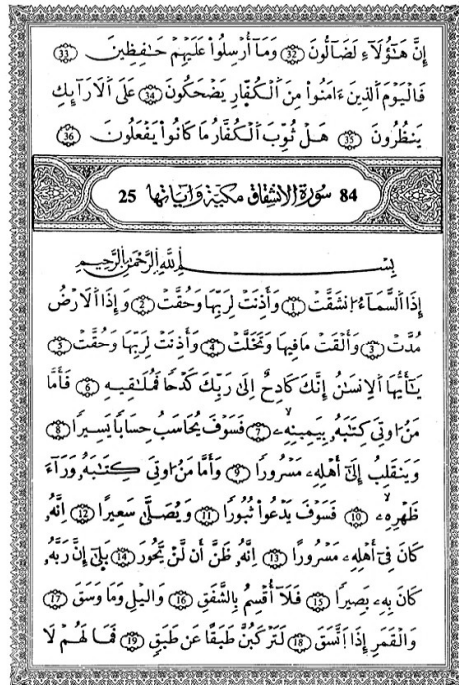 إِنَّ هَٰٓؤُلَآءِ لَضَآلُّونَ 32 وَمَآ أُرْسِلُواْ عَلَيْهِمْ حَٰفِظِينَ 33
فَالْيَوْمَ اَ۬لذِينَ ءَامَنُواْ مِنَ اَ۬لْكُفّ۪ارِ يَضْحَكُونَ 34 عَلَى اَ۬لَارَآئِكِ
يَنظُرُونَ 35 هَلْ ثُوِّبَ اَ۬لْكُفَّارُ مَا كَانُواْ يَفْعَلُونَ 36
84 سورة الانشقاق مكية وآياتها 25
بِسْمِ اِ۬للَّهِ اِ۬لرَّحْمَٰنِ اِ۬لرَّحِيمِ
إِذَا اَ۬لسَّمَآءُ اُ۪نشَقَّتْ 1 وَأَذِنَتْ لِرَبِّهَا وَحُقَّتْ 2 وَإِذَا اَ۬لَارْضُ
مُدَّتْ 3 وَأَلْقَتْ مَا فِيهَا وَتَخَلَّتْ 4 وَأَذِنَتْ لِرَبِّهَا وَحُقَّتْ 5
يَٰٓأَيُّهَا اَ۬لِانسَٰنُ إِنَّكَ كَادِحٌ اِلَىٰ رَبِّكَ كَدْحاً فَمُلَٰقِيهِ 6 فَأَمَّا
مَنُ ا۟وتِىَ كِتَٰبَهُۥ بِيَمِينِهِۦ 7 فَسَوْفَ يُحَاسَبُ حِسَاباً يَسِيراً 8
وَيَنقَلِبُ إِلَىٰٓ أَهْلِهِۦ مَسْرُوراً 9 وَأَمَّا مَنُ ا۟وتِىَ كِتَٰبَهُۥ وَرَآءَ
ظَهْرِهِۦ 10 فَسَوْفَ يَدْعُواْ ثُبُوراً 11 وَيُصَلَّىٰ سَعِيراً 12 اِنَّهُۥ
كَانَ فِىٓ أَهْلِهِۦ مَسْرُوراً 13 اِنَّهُۥ ظَنَّ أَن لَّنْ يَّحُورَ 14 بَلَىٰٓ إِنَّ رَبَّهُۥ
كَانَ بِهِۦ بَصِيراً 15 فَلَآ أُقْسِمُ بِالشَّفَقِ 16 وَاليْلِ وَمَا وَسَقَ 17
وَالْقَمَرِ إِذَا اَ۪تَّسَقَ 18 لَتَرْكَبُنَّ طَبَقاً عَن طَبَقٍ 19 فَمَا لَهُمْ لَا